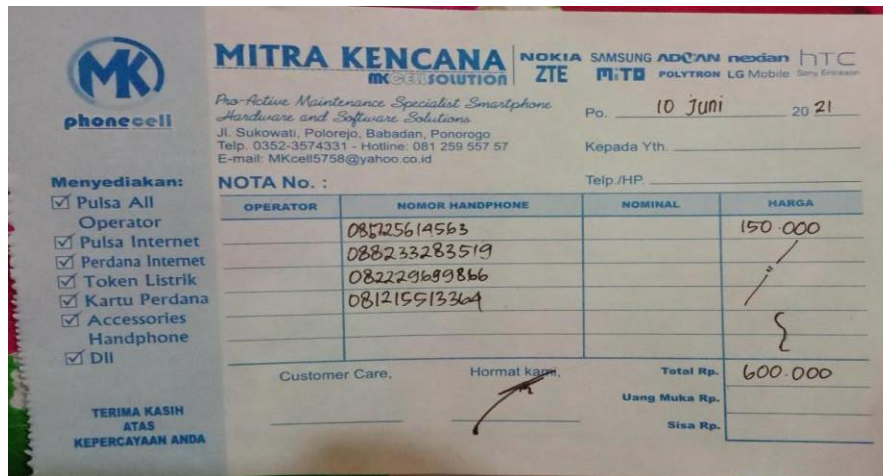 MK
phonecell
MITRA KENCANA
MKCELLSOLUTION
NOKIA SAMSUNG ADVAN nexian hTC
ZTE MiTO POLYTRON LG Mobile Sony Ericsson
Pro-Active Maintenance Specialist Smartphone
Hardware and Software Solutions
Jl. Sukowati, Polorejo, Babadan, Ponorogo
Telp. 0352-3574331 - Hotline: 081 259 557 57
E-mail: MKcell5758@yahoo.co.id
Po. 10 Juni 2021
Kepada Yth.
Telp./HP.
NOTA No. :
Menyediakan:
Pulsa All
Operator
Pulsa Internet
Perdana Internet
Token Listrik
Kartu Perdana
Accessories
Handphone
Dll
TERIMA KASIH
ATAS
KEPERCAYAAN ANDA
OPERATOR NOMOR HANDPHONE NOMINAL HARGA
150.000
088233283519
082229699866
081215513364
Customer Care, Hormat kami,
Total Rp. 600.000
Uang Muka Rp.
Sisa Rp.